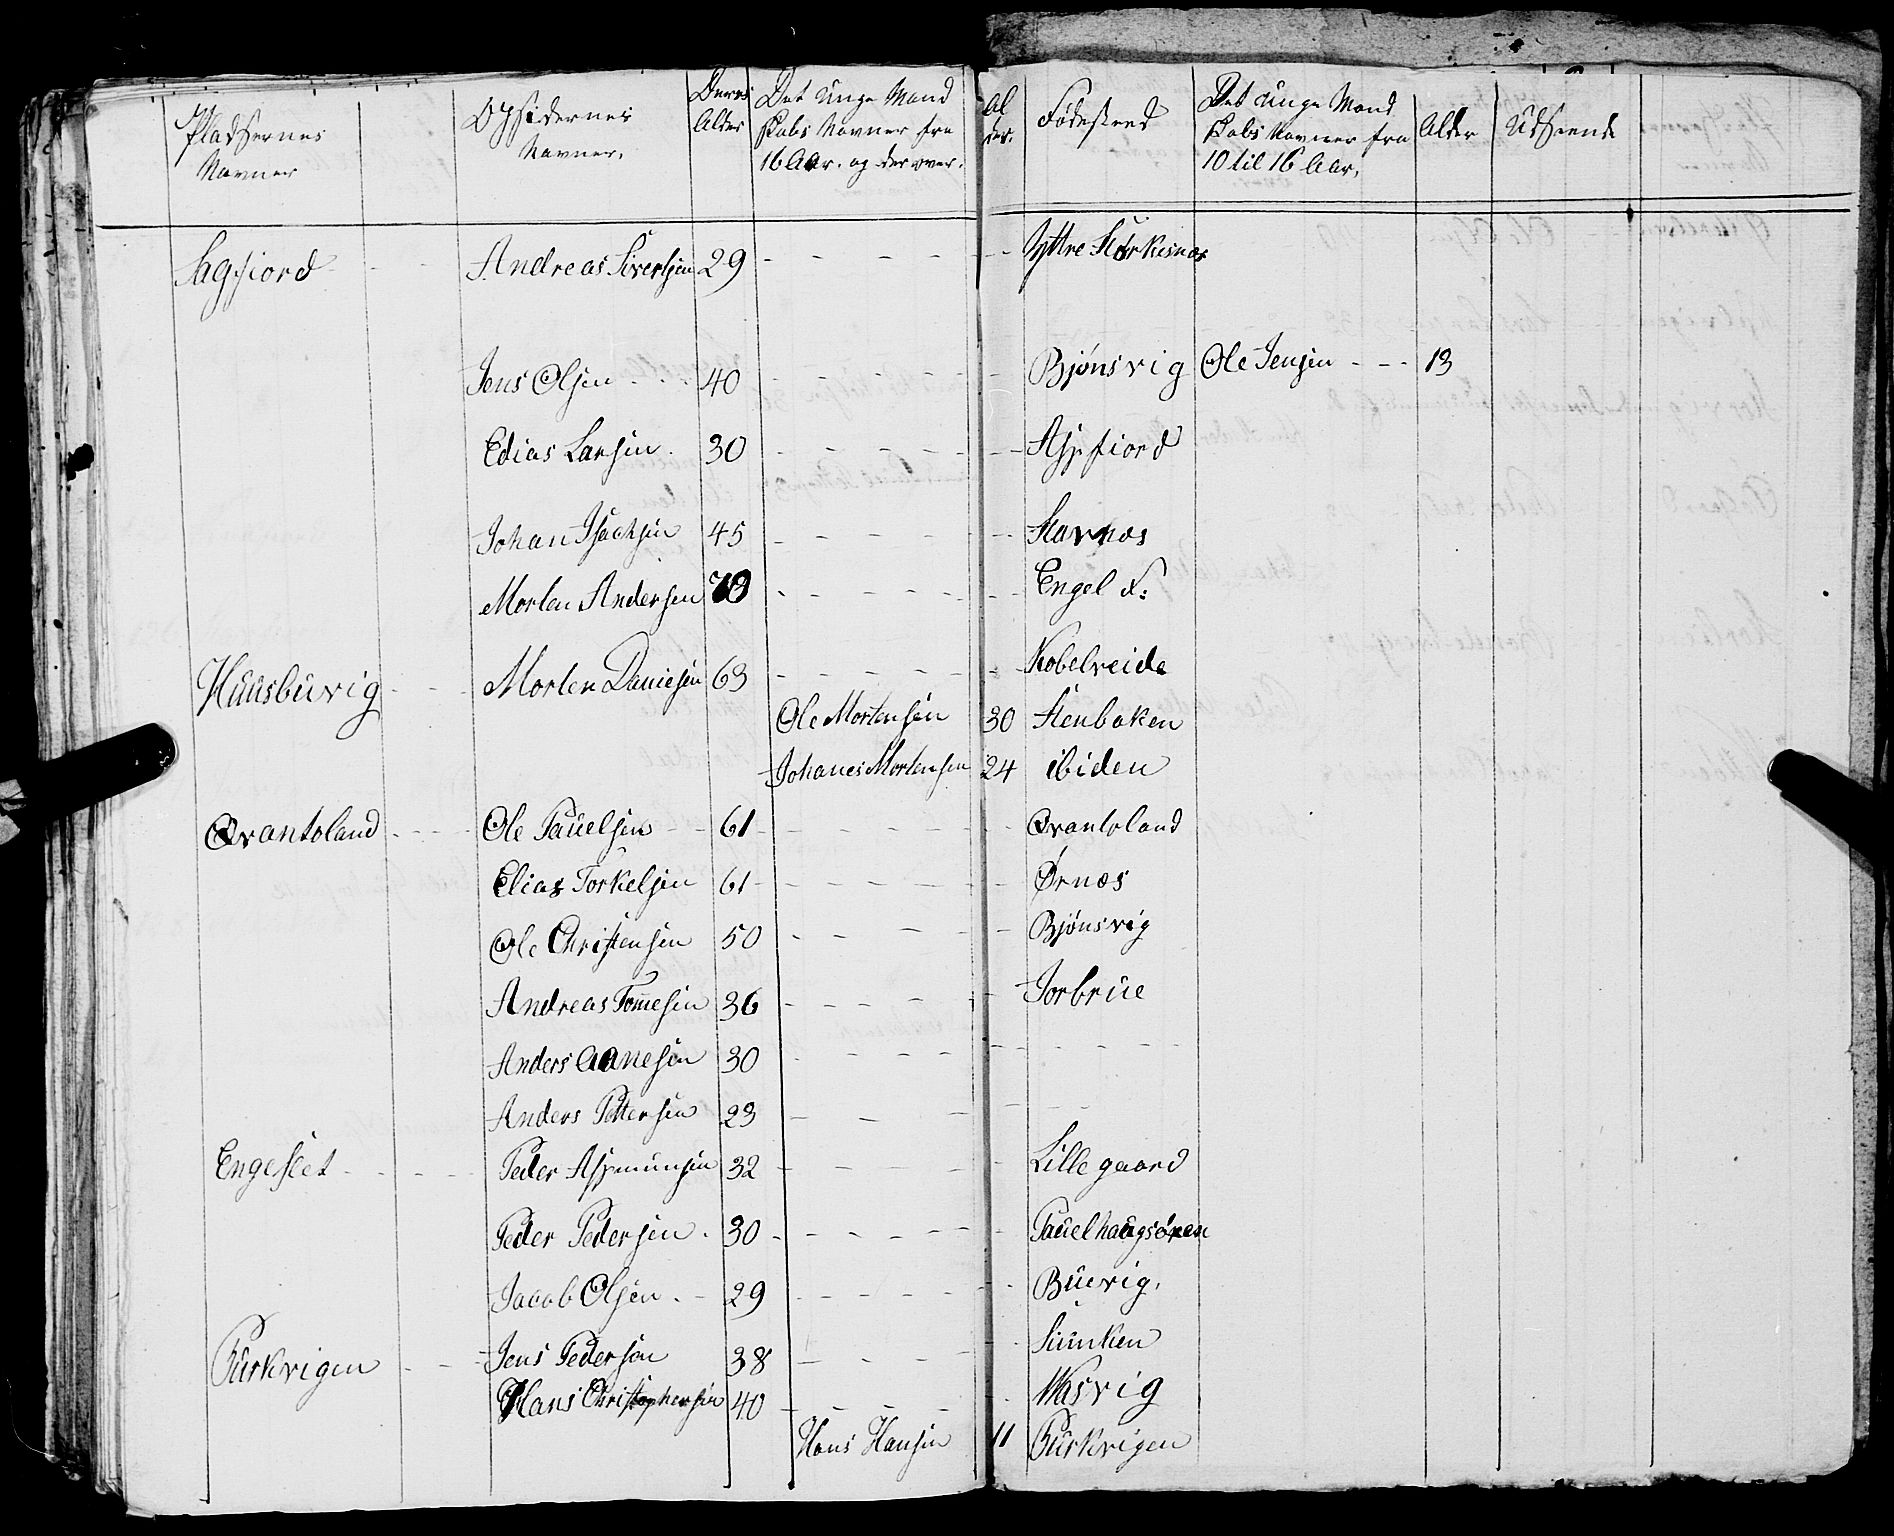 Pladsernes Navner | Opsidernes Navner. | Deres Alder | Det unge Mandskabs Navner fra 16 Aar. og derover. | Alder. | Fødested | Det unge Mandskabs Navner fra 10 til 16 Aar. | Alder | Udseende
Sagfiord - - Andreas Sivertsen 29 - - - - - - Yttre Storkesnæs
Jens Olsen - - - 40 - - - - - - Bjønsvig Ole Jensen - - - 13
Edias Larsen. 30 - - - - - - Aspfiord
Johan Isachsen 45 - - - - - - Stavnæs
Morten Andersen 70 - - - - - - Engel d:
Huusbuvig - - - Morten Daniesen 63 - - - - - - Kobelveide
Ole Mortensen 30 Stenbaken
Johanes Mortensen 24 ibiden
Qvantoland - - - Ole Pauelsen - - 61 - - - - - - Qvantoland
Elias Torkelsen 61 - - - - - - Ørnæs
Ole Christensen 50 - - - - - Bjønsvig
Andreas Tomesen 36 - - - - - Jorbrue
Anders Aanesen 30 - - - - - - - - - -
Anders Pettersen 23 - - - - - -
Engeslet - - - - Peder Aspmunsen 32 - - - - - Lillegaard
Peder Pedersen. 30 - - - - - - Pauelhaugsøren
Jacob Olsen. - 29 - - - - - - Buevig.
Purkvigen - - Jens Pedersen 38 - - - - Siunken
Hans Christophersen 40 - - - - - Wasvig
Hans Hansen 11 Purkvigen